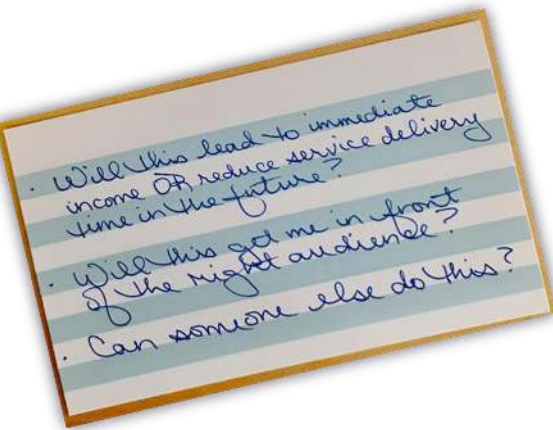 · Will this lead to immediate
income OR reduce service delivery
time in the future?
· Will this get me in front
of the right audience?
· Can someone else do this?